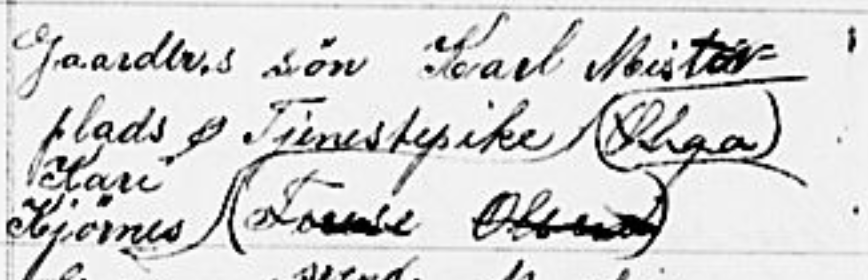 Gaardbr.s sön Karl Mister-
plads & Tjenestepike (Olga)
Kari
Kjörnes (Louise Olsen)